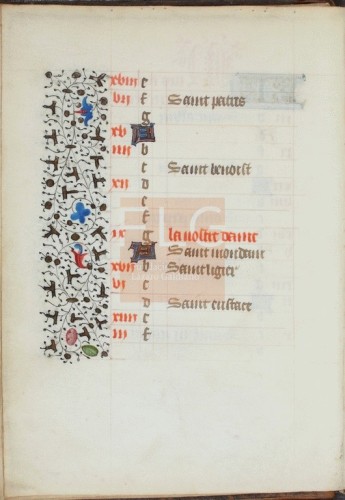 xviii e
vii f Saint patris
g
xv A
iiii b
c Saint benoist
xii d
e
f
ix g la nostre dame
A Saint mondain
xvii b Saint ligier
vi c
d Saint eustace
xiiii e
iii f